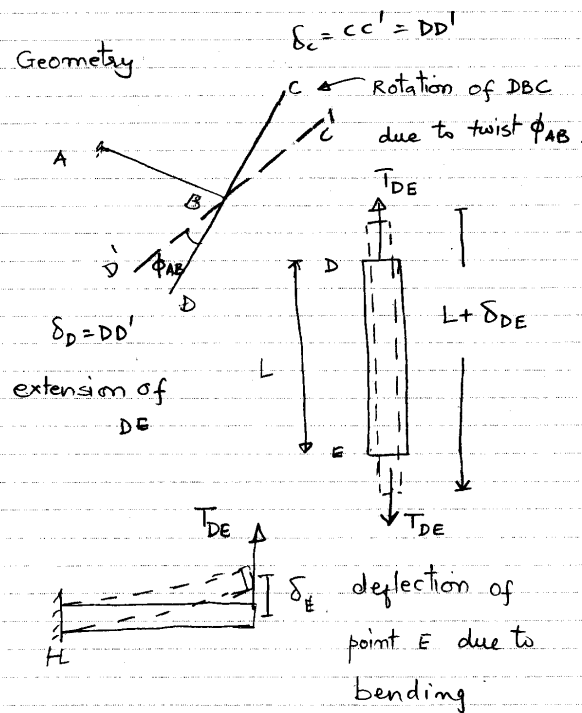 δc = CC' = DD'
Geometry
C
Rotation of DBC
C'
due to twist ϕAB
A
B
TDE
D'
ϕAB
D
D
δD = DD'
L + δDE
L
extension of
DE
E
TDE
TDE
δE
deflection of
point E due to
H
bending